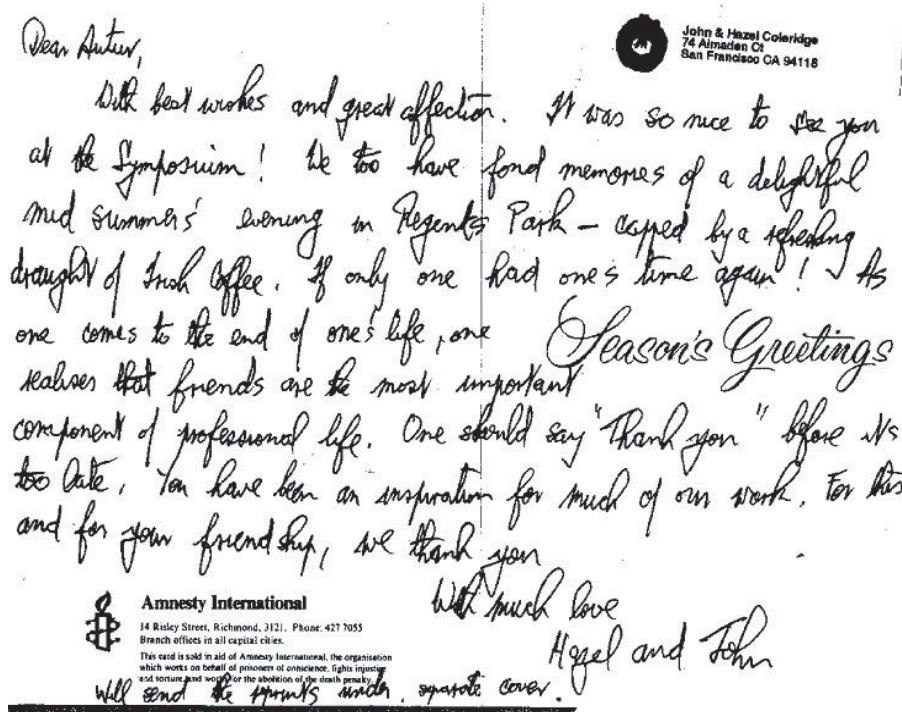 Dear Artur,
John & Hazel Coleridge
74 Almaden Ct
San Francisco CA 94118
With best wishes and great affection. It was so nice to see you
at the Symposium! We too have fond memories of a delightful
mid summers' evening in Regents Park – capped by a refreshing
draught of Irish Coffee. If only one had one's time again! As
one comes to the end of one's life, one
Season's Greetings
realises that friends are the most important
component of professional life. One should say "Thank you" before it's
too late. You have been an inspiration for much of our work. For this
and for your friendship, we thank you
With much love
Hazel and John
Amnesty International
14 Risley Street, Richmond, 3121. Phone: 427 7055
Branch offices in all capital cities.
This card is sold in aid of Amnesty International, the organisation
which works on behalf of prisoners of conscience, fights injustice
and torture and works for the abolition of the death penalty.
Will send the reprints under separate cover.